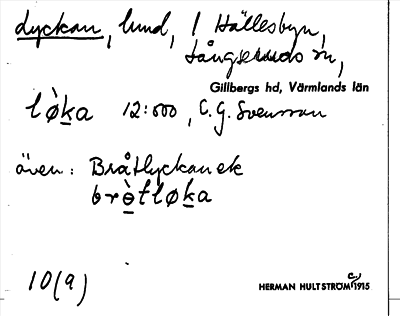 Lyckan, lund, 1 Hällesbyn,
Långseruds sn,
Gillbergs hd, Värmlands län
lø̀ka 12:000, C.G. Svensson
även: Bråtlyckan ek
brò̱tløḵa
10(9)
HERMAN HULTSTRÖM c. 1915